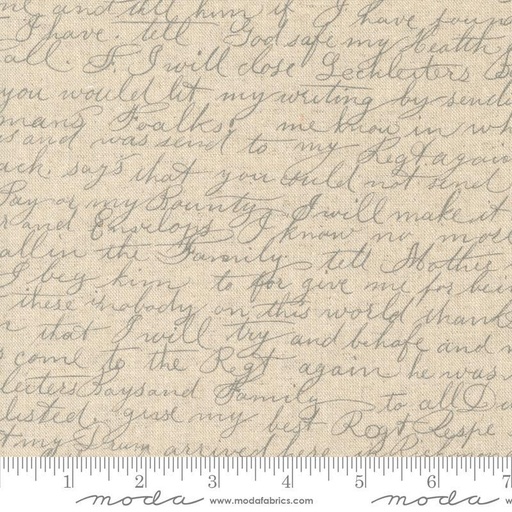 and tell him if I have found
I have. tell God safe my health
all. F. I will close Lechleiters
you would let my writing by sendi
mans Foalks. me know in wh
and was send to my Regt again
ack. says that you could not send
Pay or my Bounty I will make it
and Envelops I know no more
all in the Familly. tell Mother
I beg him to for give me for bei
these is nobody on this world thank
that I will try and behafe and
come to the Regt again he was
leiters Says and Family to all
listed. give my best Regt Respe
my Drum arrived here in
1 2 3 4 5 6 7
moda www.modafabrics.com moda www.modafabrics.com moda